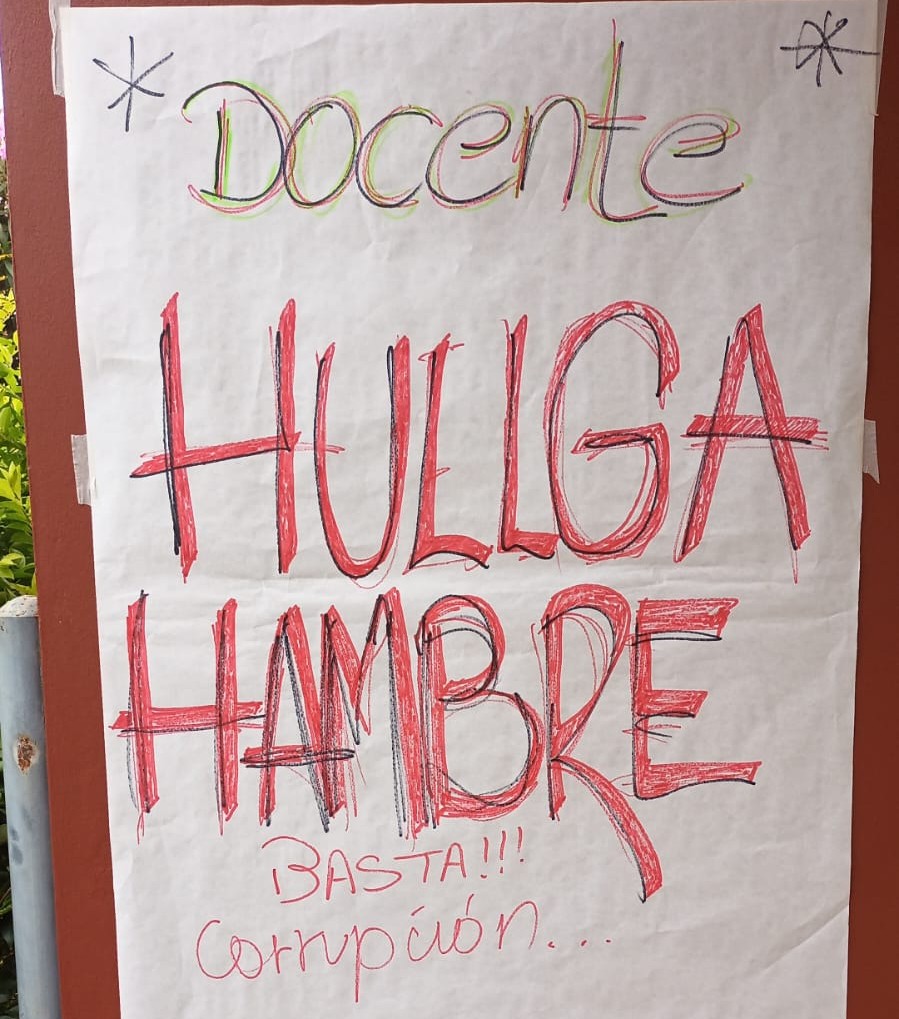 Docente
HULLGA
HAMBRE
BASTA!!!
Corrupción...